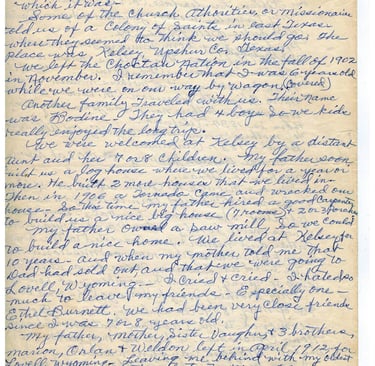 which it was-
Some of the Church Athorities, or Missionaries
told us of a Colony of Saints in east Texas
where they seemed to think we should go. The
place was Kelsey, Upsher Co. Texas.
We left the Choctaw Nation in the fall of 1902
in November. I remember that I was 6 years old
while we were on our way by wagon, (Covered)
Another family traveled with us. Their name
was Bodine. They had 4 boys so we kids
really enjoyed the long trip.
We were welcomed at Kelsey by a distant
aunt and her 7 or 8 children. My father soon
built us a log house where we lived for a year or
more. He built 2 more houses that we lived in.
Then in 1906 a Tornado came and wrecked our
house. So this time my father hired a good Carpenter
to build us a nice big house (7 rooms) & 20 3 porches
My father owned a saw mill so we could
to build a nice home. We lived at Kelsey for
10 years- and when my mother told me that
Dad had sold out and that we were going to
Lovell, Wyoming- I Cried & Cried- I hated so
much to leave my friends- Especially one-
Ethel Burnett. We had been very close friends
since I was 7 or 8 years old.
My father, mother, Sister Vaughn & 3 brothers,
Marion, Orlan & Weldon left in April, 1912 for
Lovell Wyoming leaving me behind with my oldest